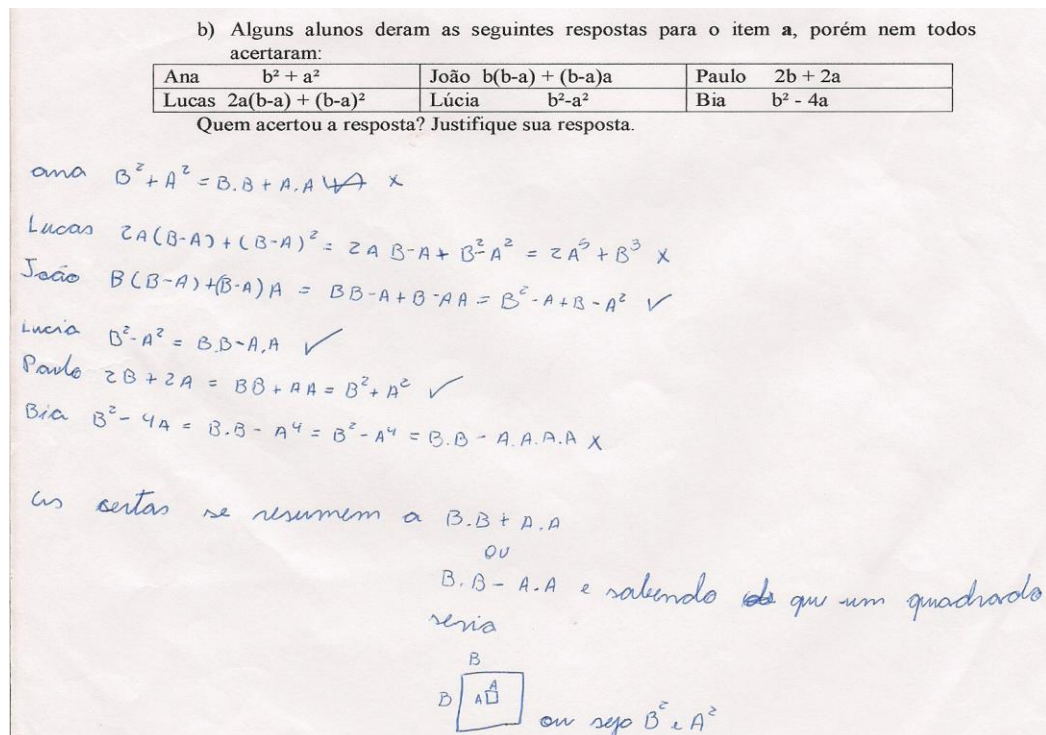 b) Alguns alunos deram as seguintes respostas para o item a, porém nem todos
acertaram:
Ana b² + a² João b(b-a) + (b-a)a Paulo 2b + 2a
Lucas 2a(b-a) + (b-a)² Lúcia b²-a² Bia b² - 4a
Quem acertou a resposta? Justifique sua resposta.
ana B² + A² = B.B + A.A x
Lucas 2A(B-A) + (B-A)² = 2A B-A + B²-A² = 2A⁵ + B³ x
João B(B-A)+(B-A)A = BB-A+B-AA = B²-A+B-A² ✓
Lucia B²-A² = B.B-A.A ✓
Paulo 2B + 2A = BB + AA = B² + A² ✓
Bia B² - 4A = B.B - A⁴ = B² - A⁴ = B.B - A.A.A.A x
as certas se resumem a B.B + A.A
OU
B.B - A.A e sabendo que um quadrado
seria
B
B A A
ou seja B² e A²